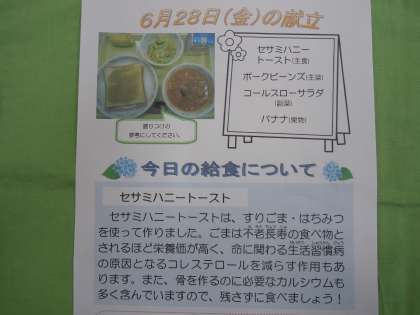 6月28日(金)の献立
セサミハニー
トースト(主食)
ポークビーンズ(主菜)
コールスローサラダ
(副菜)
バナナ(果物)
盛りつけの
参考にしてください。
今日の給食について
セサミハニートースト
セサミハニートーストは、すりごま・はちみつ
を使って作りました。ごまは不老長寿の食べ物と
されるほど栄養価が高く、命に関わる生活習慣病
の原因となるコレステロールを減らす作用もあ
ります。また、骨を作るのに必要なカルシウムも
多く含んでいますので、残さずに食べましょう!